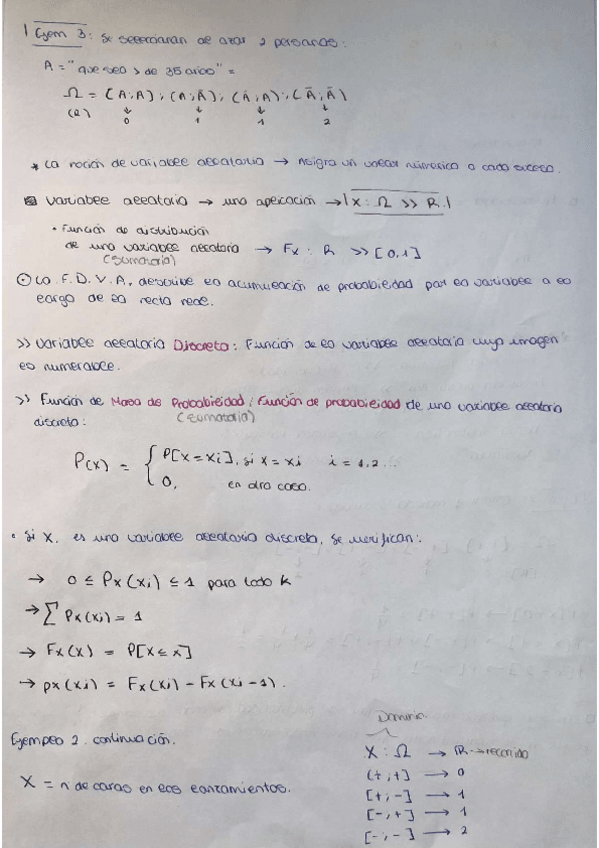 Ejem 3: Se seleccionan de azar 2 personas:
A = "que sea > de 35 años" =
Ω = (A;A); (A;Ā); (Ā;A); (Ā;Ā)
(R) ↓ ↓ ↓ ↓
0 1 1 2
* La noción de variable aleatoria → Asigna un valor númerico a cada suceso.
Variable aleatoria → una aplicación → | X : Ω >> R. |
• Función de distribución
de una variable aleatoria → Fx : R >> [0,1]
(sumatoria)
⊙ La F.D.V.A, describe la acumulación de probabilidad por la variable a lo
largo de la recta real.
>> Variable aleatoria Discreta: Función de la variable aleatoria cuya imagen
es numerable.
>> Función de Masa de Probabilidad / Función de probabilidad de una variable aleatoria
(sumatoria)
discreta:
P(x) = { P[X = xi], si X = xi i = 1,2...
0, en otro caso.
• Si X, es una variable aleatoria discreta, se verifican:
→ 0 ≤ Px (xi) ≤ 1 para todo k
→ ∑ Px(xi) = 1
→ Fx(x) = P[X ≤ x]
→ px(xi) = Fx(xi) - Fx(xi-1).
Dominio
Ejemplo 2. continuación.
X : Ω → R → recorrido
X = n de caras en los lanzamientos.
(+,+] → 0
[+,-] → 1
[-,+] → 1
[-,-] → 2